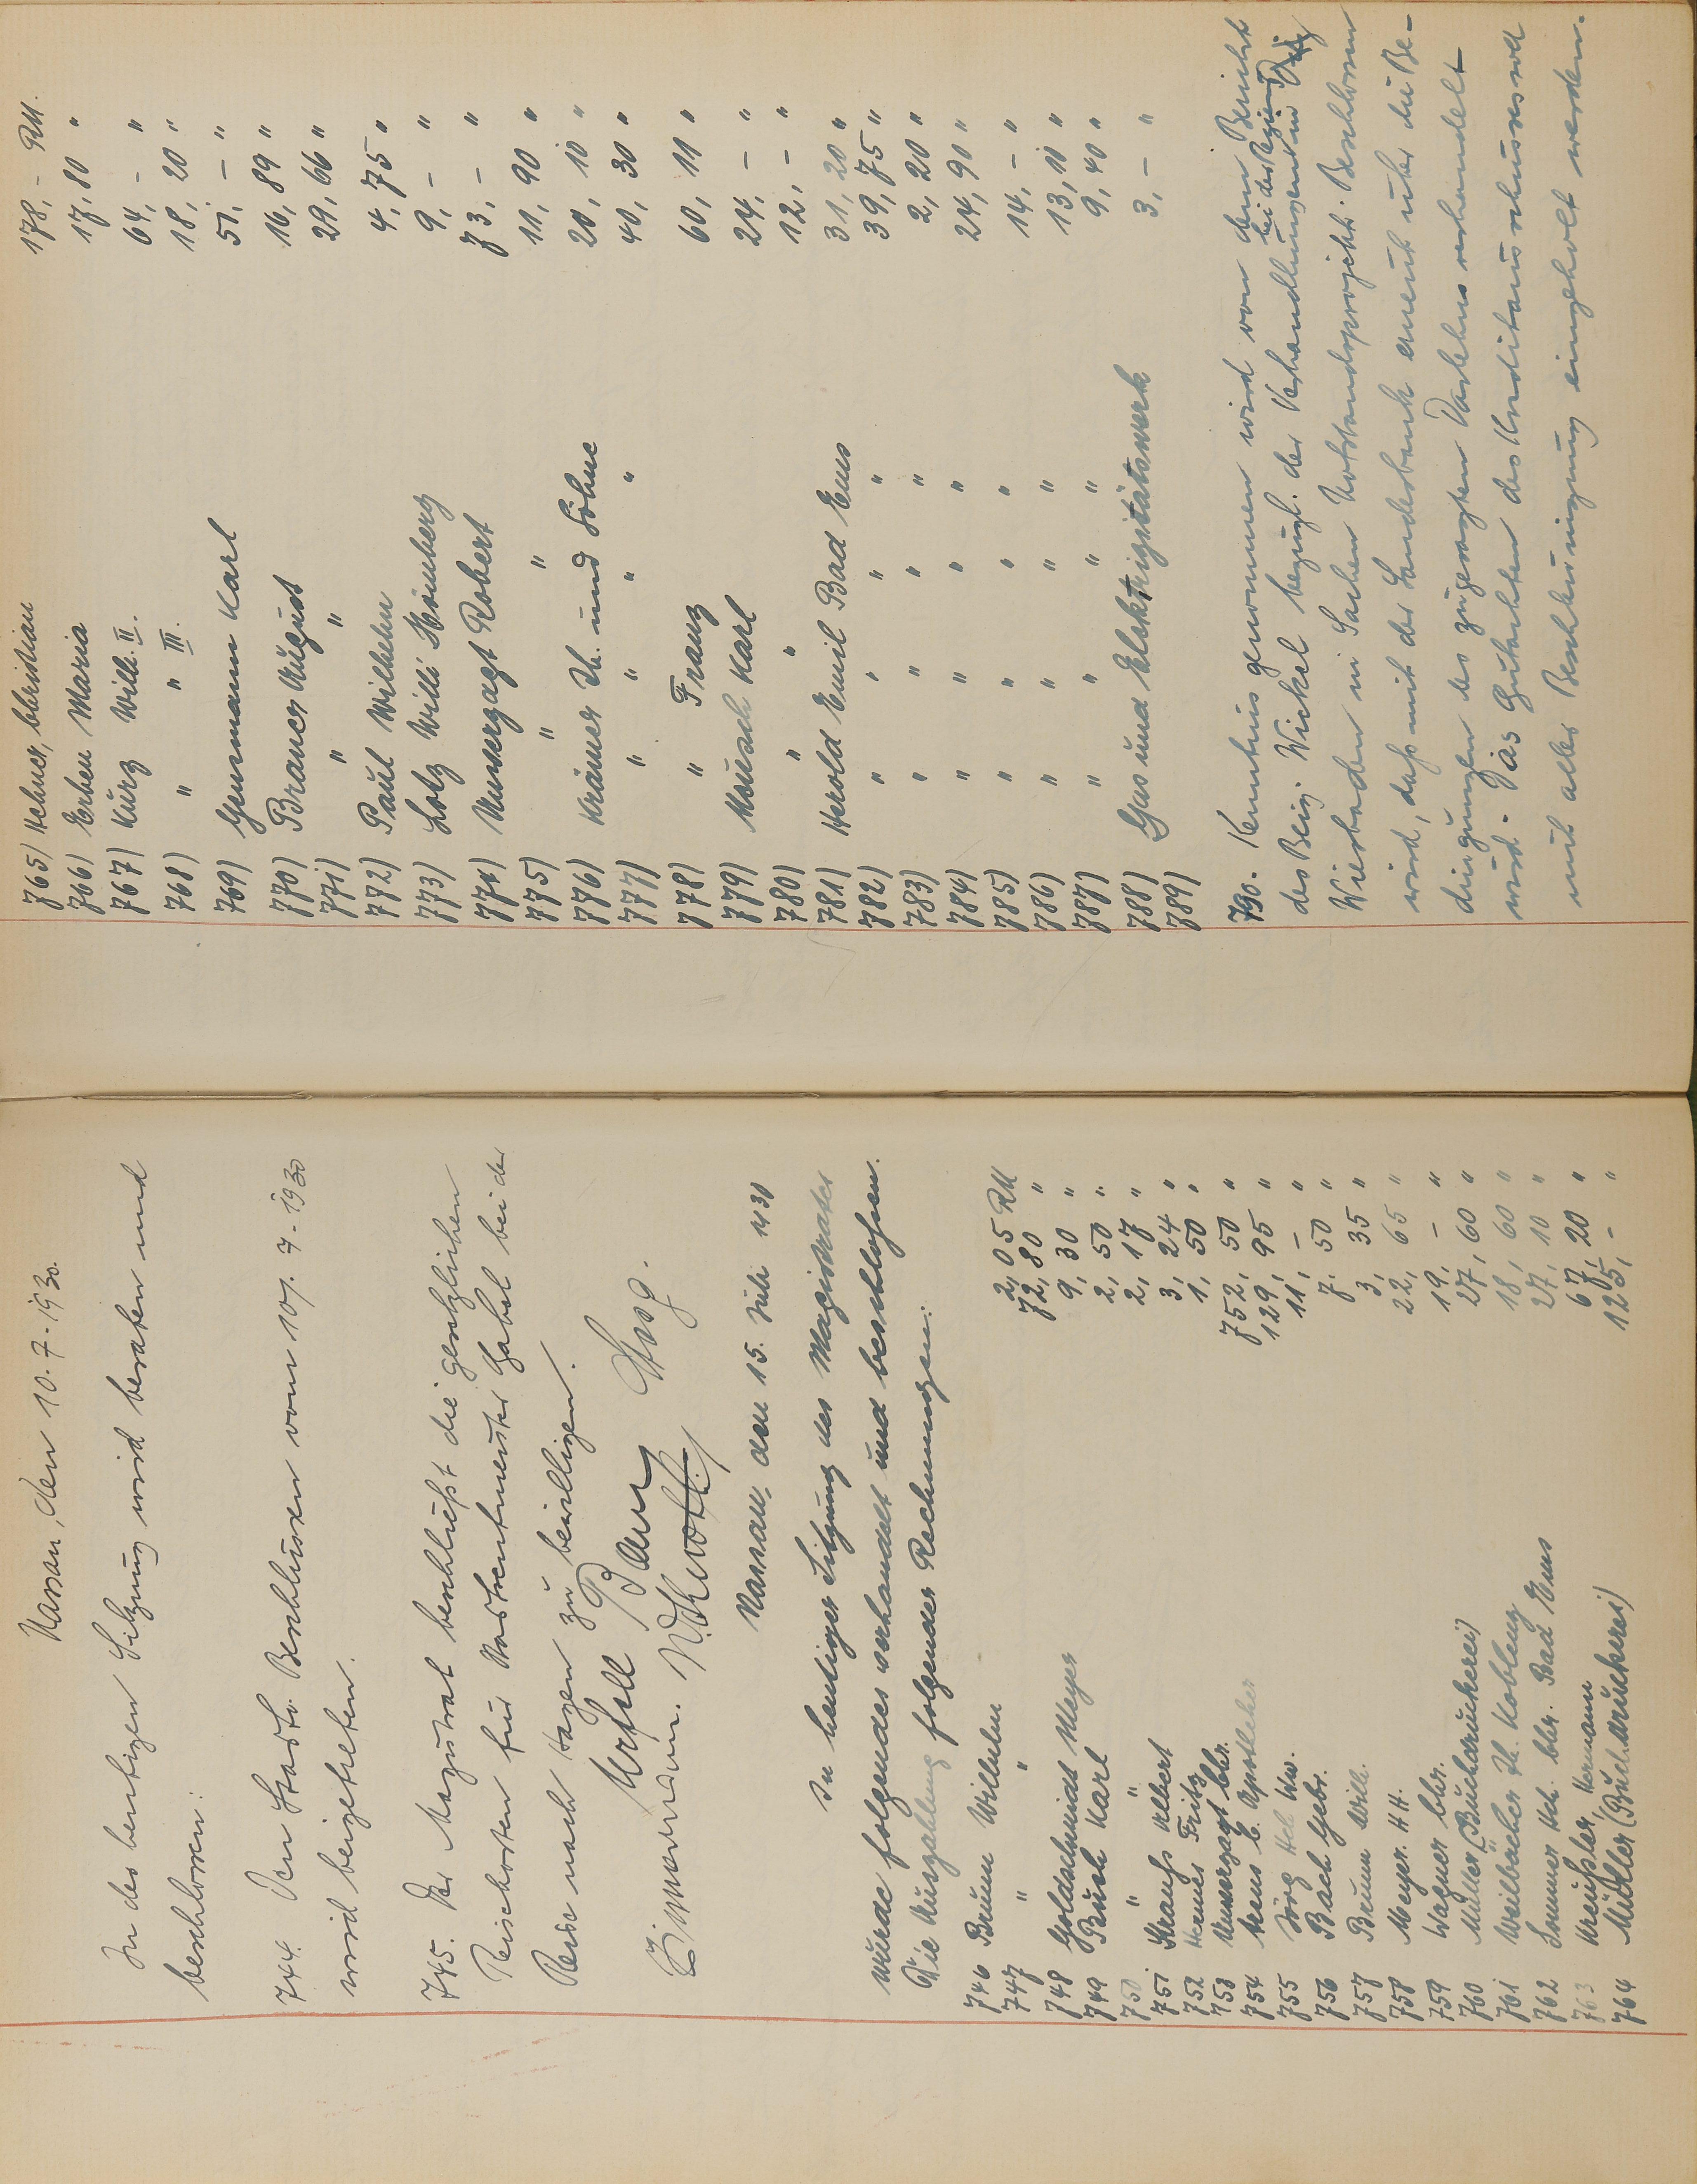 Nassau, den 10.7.1930.
In der heutigen Sitzung wird beraten und
beschlossen:
744. Den Stadtv. Beschlüssen vom 10. 7. 1930
wird beigetreten.
745. Der Magistrat beschließt die gesetzlichen
Reisekosten für Gabel bei der
Reise nach Hagen zu bewilligen.
Unkell Bau
Zimmermann.
Nassau, den 15. Juli 1930
In heutiger Sitzung des Magistrates
wurde folgendes verhandelt und beschloßen.
Die Auszahlung folgender Rechnungen:
746 Bruun Wilhelm 2,05 RM
747 " " 72,80 "
748 Goldschmidt Meyer 9,30 "
749 Busch Karl 2,50 "
750 " " 2,17 "
751 Strauß Albert 3,24 "
752 Hermes Fritz 1,50 "
753 Unverzagt Chr. 752,50 "
754 C. Apotheker 129,95 "
755 Jörg Hch Ww. 11,- "
756 Bach Gebr. 7.50 "
757 Bruun Wilh. 3,35 "
758 Meyer. H.H. 22,65 "
759 Wagner Chr. 19,- "
760 Müller (Buchdruckerei) 27,60 "
761 Weilbächer Th. Koblenz 18,60 "
762 Hch. Chr. Bad Ems 27,10 "
763 Kreißler, Hermann 67,20 "
764 Müller (Buchdruckerei) 125,- "
765) Hehner, Christian 178,- RM.
766) Erben Maria 17,80 "
767) Kurz Wilh. II. 64,- "
768) " " III. 18,20 "
769) Karl 51,- "
770) Brauer August 16,89 "
771) " " 29,66 "
772) Paul Wilhelm 4,75 "
773) Lotz Willi Hömberg 9,- "
774) Unverzagt Robert 73,- "
775) " " 11,90 "
776) Krämer Th. und Söhne 20,10 "
777) " " " " 40,30 "
778) " Franz 60,11 "
779) Mäusch Karl 24,- "
780) " " 12,- "
781) Herold Emil Bad Ems 31,20 "
782) " " " " 39,75 "
783) " " " " 2,20 "
784) " " " " 24,90 "
785) " " " " 14,- "
786) " " " " 13,10 "
787) " " " " 9,40 "
788) Gas und Elektrizitätswerk 3,- "
789)
790. Kenntnis genommen wird von dem Bericht
des Beig. Wickel bezügl. der Verhandlungen bei der Regierung in
Wiesbaden in Sachen Notstandsprojekt. Beschlossen
wird, daß mit der Landesbank erneut über die Be-
dingungen des zugesagten Darlehns verhandelt
wird. Das Gutachten des Kreditausschusses soll
mit aller Beschleunigung eingeholt werden.